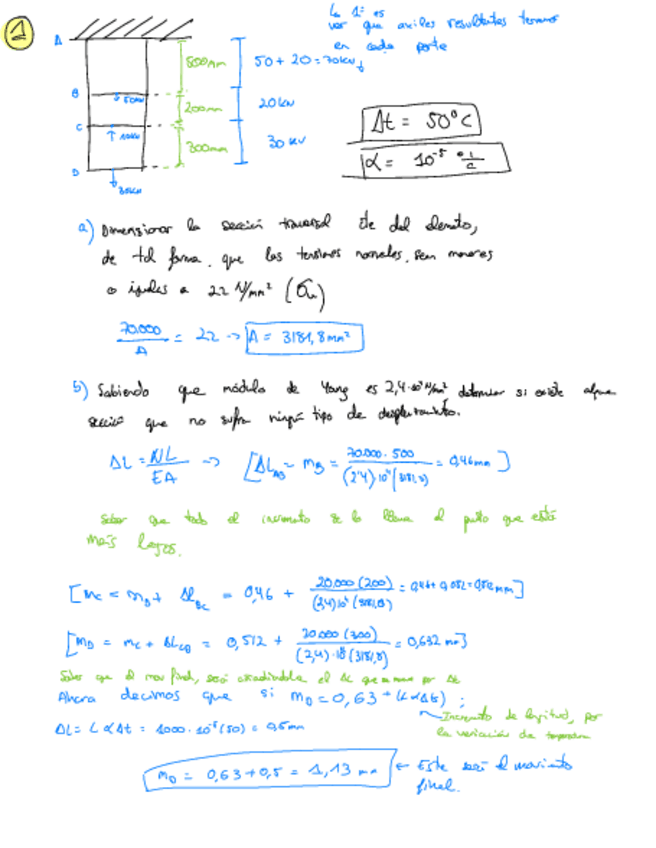 1
Lo 1º es
ver que axiles resultantes tenemos
en cada parte
A
500mm
50 + 20 = 70kN
B
50kN
200mm
20kN
C
10kN
300mm
30 kN
D
30kN
Δt = 50°C
α = 10⁻⁵
a) Dimensionar la sección trasversal de del elemento,
de tal forma, que las tensiones normales, sean menores
o iguales a 22 N/mm² (σ
70.000/A = 22 → A = 3181,8mm²
b) Sabiendo que módulo de Young es 2,4·10⁴ N/mm² determinar si existe alguna
sección que no sufra ningún tipo de desplazamiento.
ΔL = NL/EA → [ΔL_AB = m_B = 70.000·500/(2'4)10⁴(3181,8) = 0,46mm]
Saber que todo el incremento se lo lleva el punto que está
más lejos.
[m_C = m_B + ΔL_BC = 0,46 + 20.000(200)/(2,4)10⁴(3181,8) = 0,46 + 0,052 = 0,512 mm]
[m_D = m_C + ΔL_CD = 0,512 + 30.000(300)/(2,4)·10⁴(3181,8) = 0,632 mm]
Saber que el mov final, será
Ahora decimos que si m_D = 0,63 + (LαΔt) ;
Incremento de longitud, por
la variación de temperatura
ΔL = LαΔt = 1000·10⁻⁵(50) = 0,5mm
m_D = 0,63 + 0,5 = 1,13 mm ← Este será el movimiento
final.